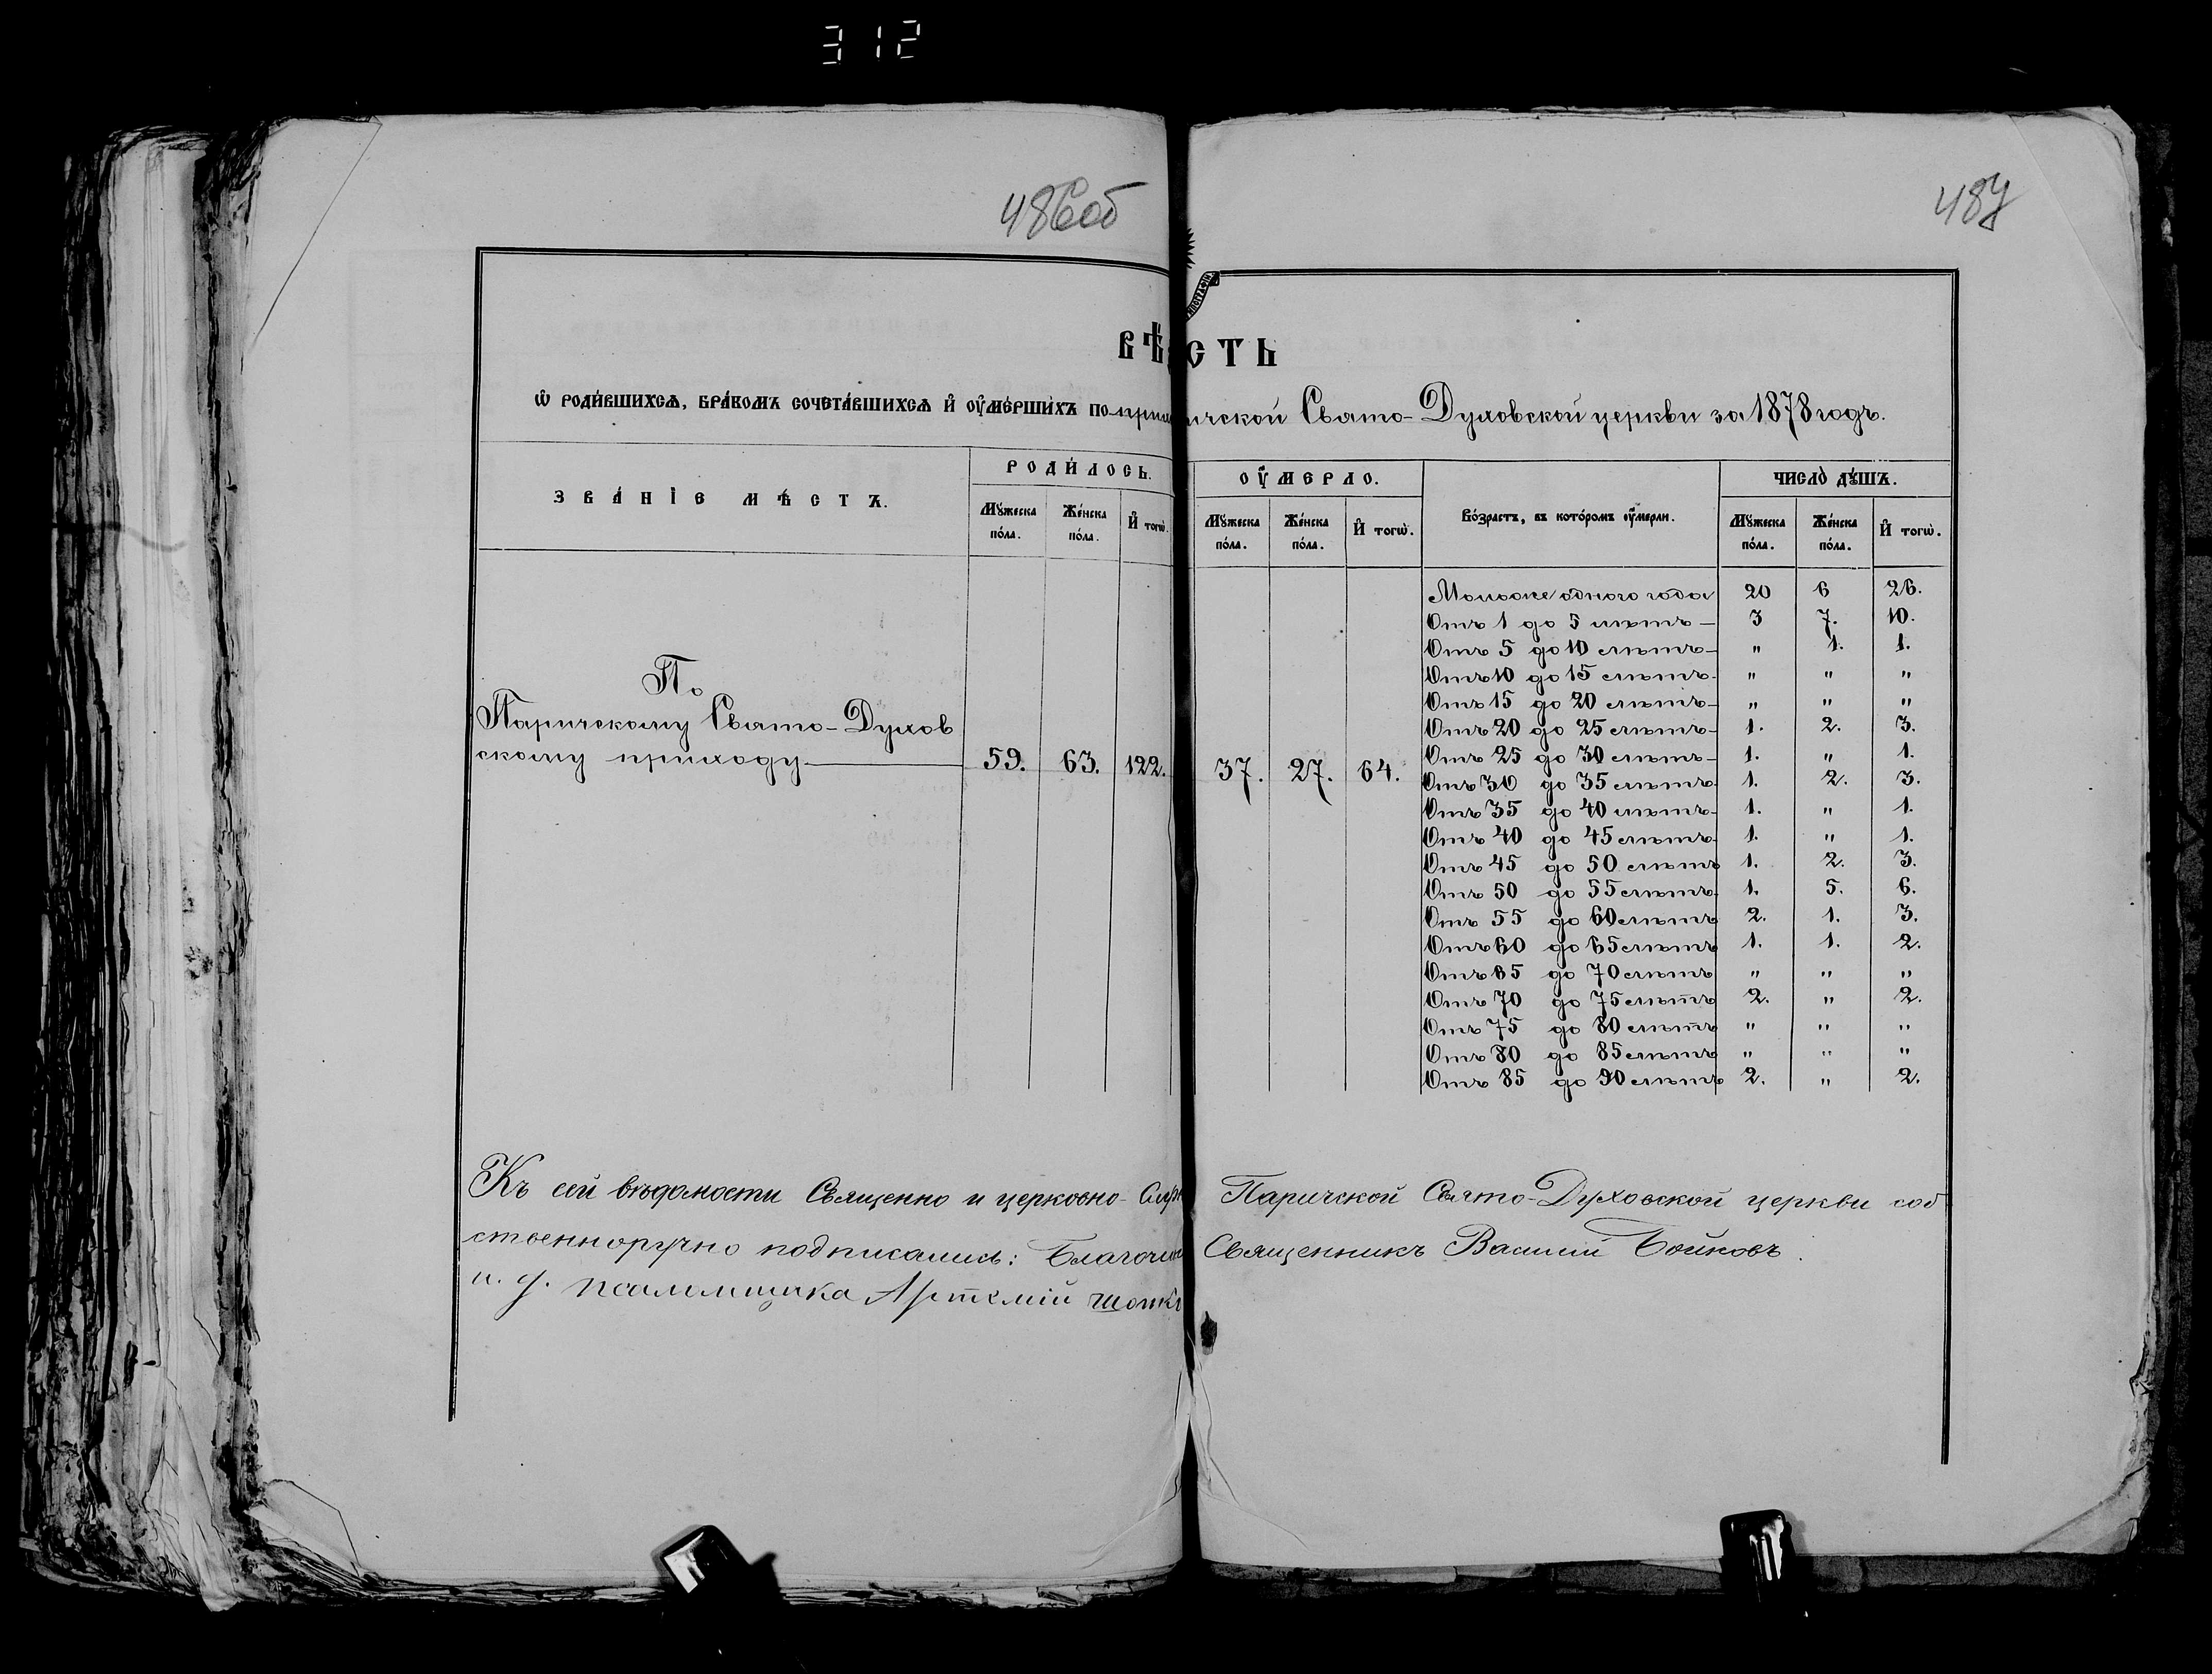 312
486об
487
ВѢСТЬ
Ѡ РОДИ́ВШИХСѦ, БРА́КОМЪ СОЧЕТА́ВШИХСѦ И҆ ОУ҆МЕ́РШИХЪ ПО ичской Свято-Духовской церкви за 1878 годъ.
ЗВА́НІЕ МѢ́СТЪ. РОДИ́ЛОСЬ. ОУ҆́МЕРЛО. Во́зрастъ, въ кото́ромъ оу҆́мерли. ЧИСЛО̀ ДꙊ́ШЪ.
Мꙋ́жеска по́ла. Же́нска по́ла. И҆ тогѡ̀. Мꙋ́жеска по́ла. Же́нска по́ла. И҆ тогѡ̀. Мꙋ́жеска по́ла. Же́нска по́ла. И҆ тогѡ̀.
По
Паричскому Свято-Духов
скому приходу 59. 63. 122. 37. 27. 64.
Моложе одного года 20 6 26.
Отъ 1 до 5 лѣтъ 3 7. 10.
Отъ 5 до 10 лѣтъ " 1. 1.
Отъ 10 до 15 лѣтъ " " "
Отъ 15 до 20 лѣтъ " " "
Отъ 20 до 25 лѣтъ 1. 2. 3.
Отъ 25 до 30 лѣтъ 1. " 1.
Отъ 30 до 35 лѣтъ 1. 2. 3.
Отъ 35 до 40 лѣтъ 1. " 1.
Отъ 40 до 45 лѣтъ 1. " 1.
Отъ 45 до 50 лѣтъ 1. 2. 3.
Отъ 50 до 55 лѣтъ 1. 5. 6.
Отъ 55 до 60 лѣтъ 2. 1. 3.
Отъ 60 до 65 лѣтъ 1. 1. 2.
Отъ 65 до 70 лѣтъ " " "
Отъ 70 до 75 лѣтъ 2. " 2.
Отъ 75 до 80 лѣтъ " " "
Отъ 80 до 85 лѣтъ " " "
Отъ 85 до 90 лѣтъ 2. " 2.
Къ сей вѣдомости Священно и церковно- Паричской Свято-Духовской церкви соб
ственноручно подписались: Священникъ Василій Бойковъ.
и. д. псаломщика Артемій